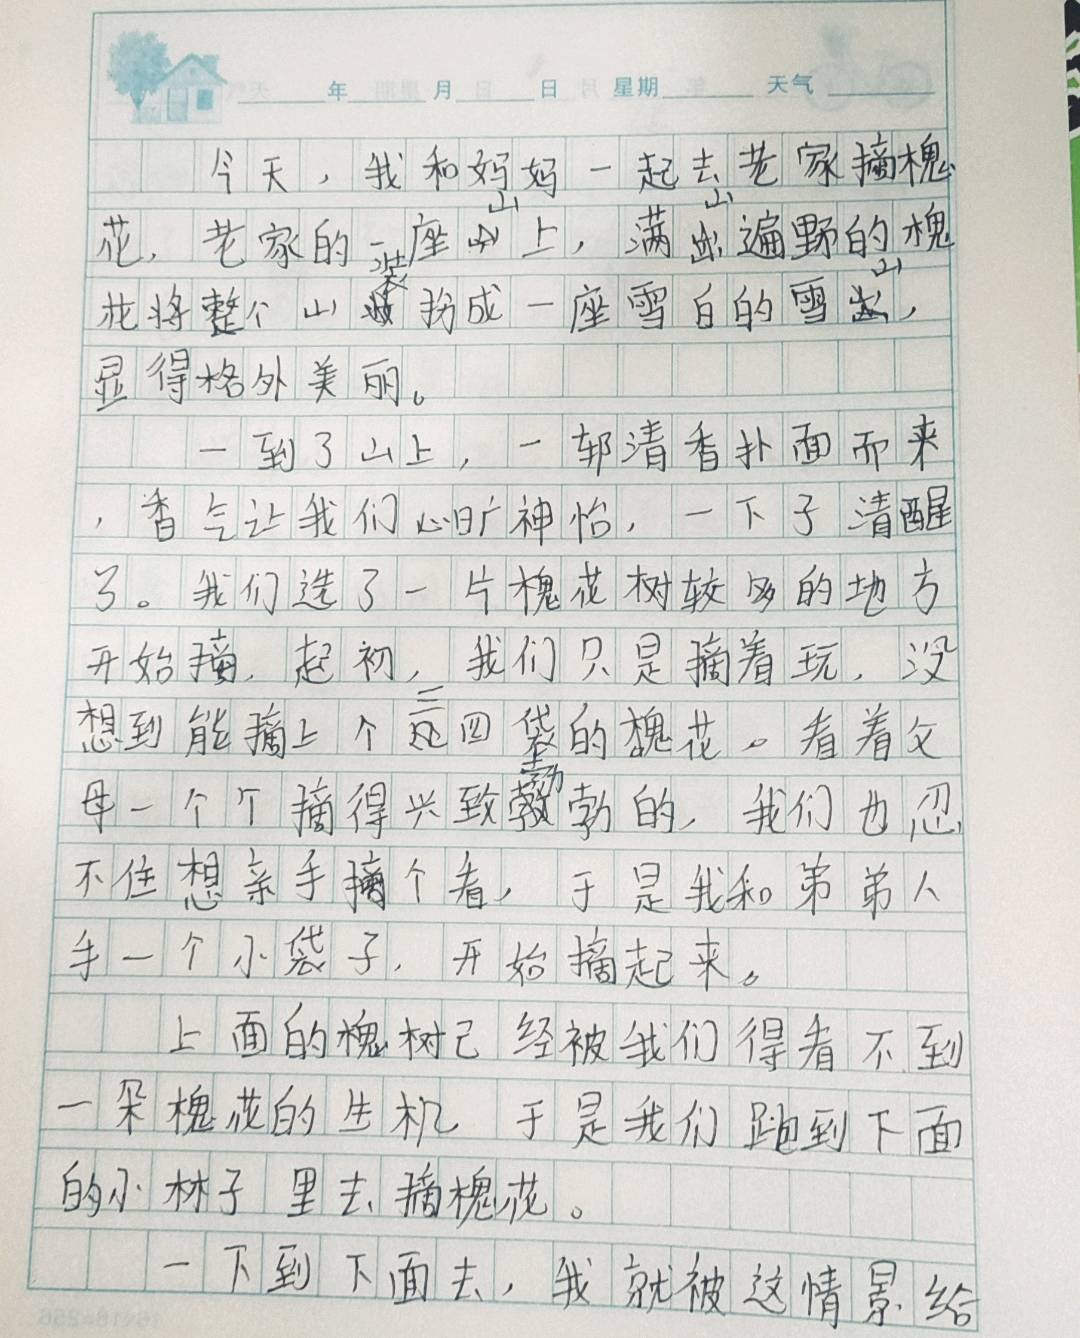 年 月 日 星期 天气
今天，我和妈妈一起去老家摘槐
花，老家的一座山上，满山遍野的槐
花将整个山装扮成一座雪白的雪山，
显得格外美丽。
一到了山上，一郓清香扑面而来
，香气让我们心旷神怡，一下子清醒
了。我们选了一片槐花树较多的地方
开始摘，起初，我们只是摘着玩，没
想到能摘上个三四袋的槐花。看着父
母一个个摘得兴致勃勃的，我们也忍
不住想亲手摘个看，于是我和弟弟人
手一个小袋子，开始摘起来。
上面的槐树已经被我们得看不到
一朵槐花的生机，于是我们跑到下面
的小林子里去摘槐花。
一下到下面去，我就被这情景给